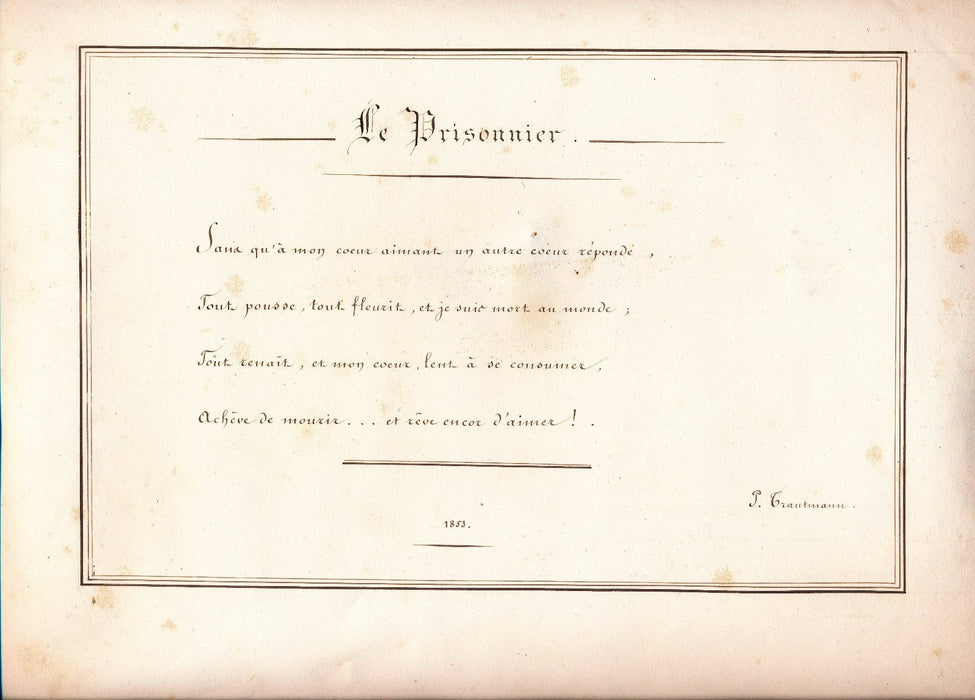 Le Prisonnier.
Sans qu'à mon coeur aimant un autre coeur réponde,
Tout pousse, tout fleurit, et je suis mort au monde;
Tout renaît, et mon coeur, lent à se consumer,
Achève de mourir... et rêve encor d'aimer!.
P. Trautmann.
1853.